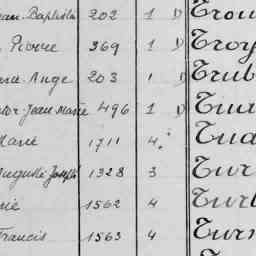 ean-Baptiste 202 1 D Trou
Pierre 369 1 D Troy
Ange 203 1 D Trub
tor-Jean Marie 496 1 D Tua
Marie 1711 4 Tua
Auguste Joseph 1328 3 Tur
rie 1562 4 Turb
Francis 1563 4 Turn